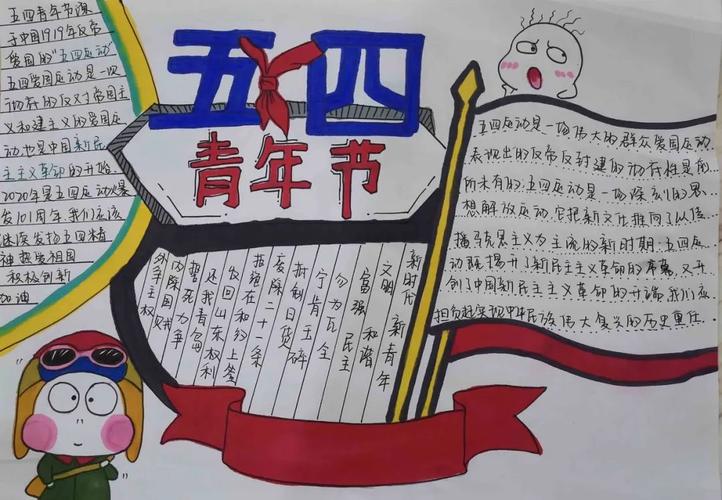 五四
青年节
五四青年节源
于中国1919年反帝
爱国的"五四运动"
五四爱国运动是一次
彻底的反对帝国主
义和建主义的爱国运
动也是中国新民
主主义革命的开始
2020年是五四运动爆
发101周年,我们应该
继续发扬五四精
神热爱祖国
积极创新
加油
新时代 新青年
文明 和谐
富强 民主
勿为瓦全
宁肯玉碎
抵制日货
废除二十一条
拒绝在和约上签
收回山东权利
还我青岛
誓死力争
内除国贼
外争主权
五四运动是一场伟大的群众爱国运动,
表现出的反帝反封建的彻底性是前
所未有的;五四运动是一场深刻的思
想解放运动,它把新文化推向了以传
播马克思主义为主流的新时期;五四运
动既揭开了新民主主义革命的序幕,又开
创了中国新民主主义革命的开端,我们应
担负起实现中华民族伟大复兴的历史重任